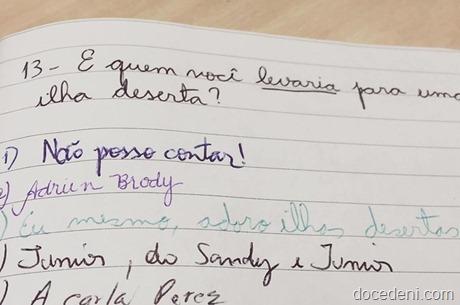 13- E quem você levaria para uma
ilha deserta?
1) Não posso contar!
) Adrien Brody
) Eu mesmo, adoro ilhas desertas
) Junior, do Sandy e Junior
) A carla Perez
docedeni.com